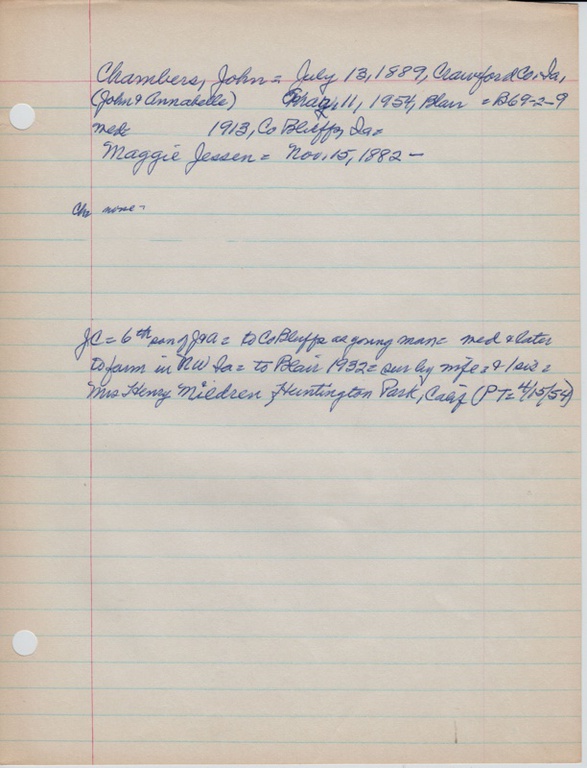 Chambers, John = July 13, 1889, Crawford Co. Ia.
(John & Annabelle) 11, 1954, Blair = B69-2-9
med 1913, Co Bluffs, Ia =
Maggie Jessen = Nov. 15, 1882 —
Ch none -
JC = 6th son of J & A = to Co Bluffs as young man = med & later
to farm in NW Ia = to Blair 1932 = sur by wife & 1 sis =
Mrs Henry Huntington Park, Calif (PT = 4/15/54)